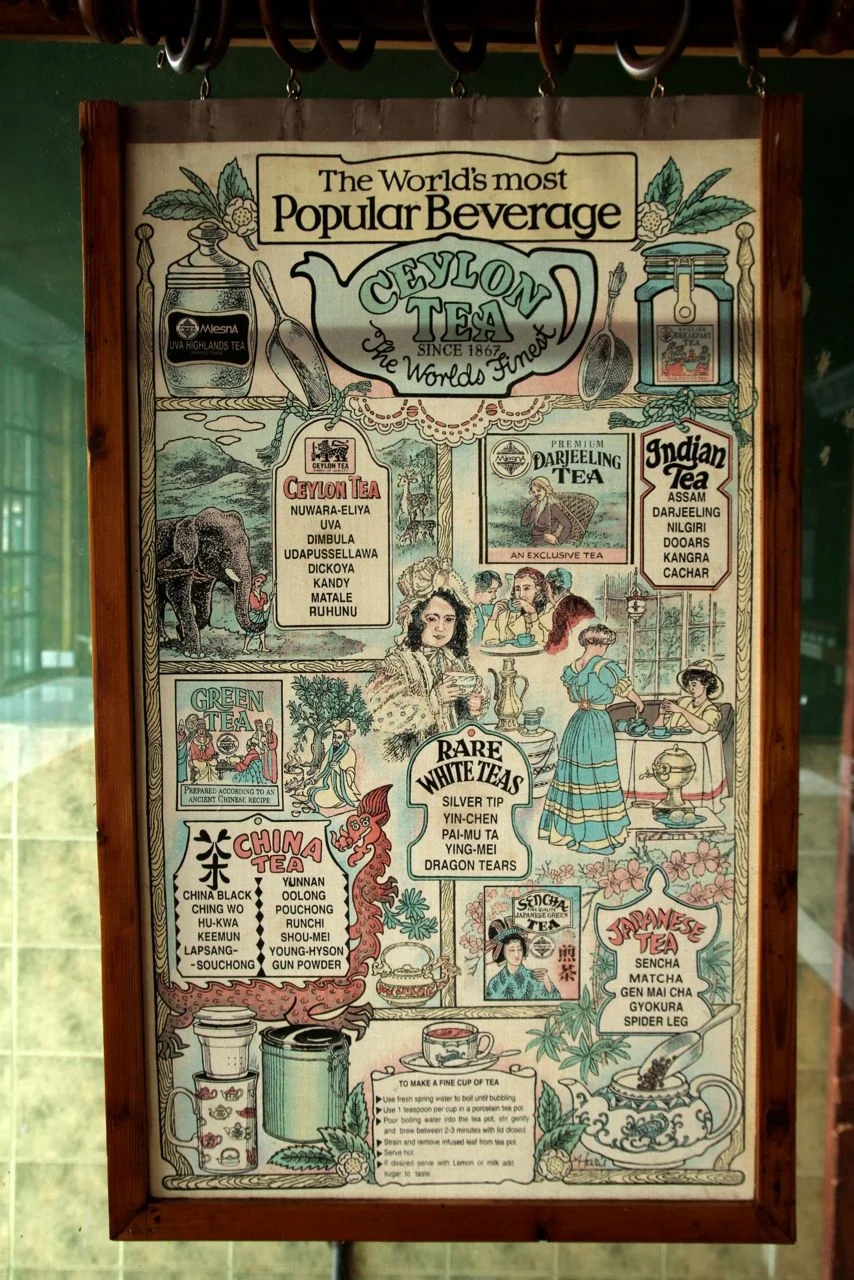 The World's most
Popular Beverage
CEYLON
TEA
SINCE 1867
The Worlds Finest
MlesnA
UVA HIGHLANDS TEA
ENGLISH
BREAKFAST
TEA
CEYLON TEA
CEYLON TEA
NUWARA-ELIYA
UVA
DIMBULA
UDAPUSSELLAWA
DICKOYA
KANDY
MATALE
RUHUNU
PREMIUM
MlesnA
DARJEELING
TEA
AN EXCLUSIVE TEA
Indian
Tea
ASSAM
DARJEELING
NILGIRI
DOOARS
KANGRA
CACHAR
GREEN
TEA
PREPARED ACCORDING TO AN
ANCIENT CHINESE RECIPE
RARE
WHITE TEAS
SILVER TIP
YIN-CHEN
PAI-MU TA
YING-MEI
DRAGON TEARS
茶
CHINA
TEA
CHINA BLACK
CHING WO
HU-KWA
KEEMUN
LAPSANG-
-SOUCHONG
YUNNAN
OOLONG
POUCHONG
RUNCHI
SHOU-MEI
YOUNG-HYSON
GUN POWDER
SENCHA
JAPANESE GREEN
TEA
煎
茶
JAPANESE
TEA
SENCHA
MATCHA
GEN MAI CHA
GYOKURA
SPIDER LEG
TO MAKE A FINE CUP OF TEA
Use fresh spring water to boil until bubbling.
Use 1 teaspoon per cup in a porcelain tea pot.
Pour boiling water into the tea pot, stir gently
and brew between 2-3 minutes with lid closed.
Strain and remove infused leaf from tea pot.
Serve hot.
If desired serve with Lemon or milk add
sugar to taste.